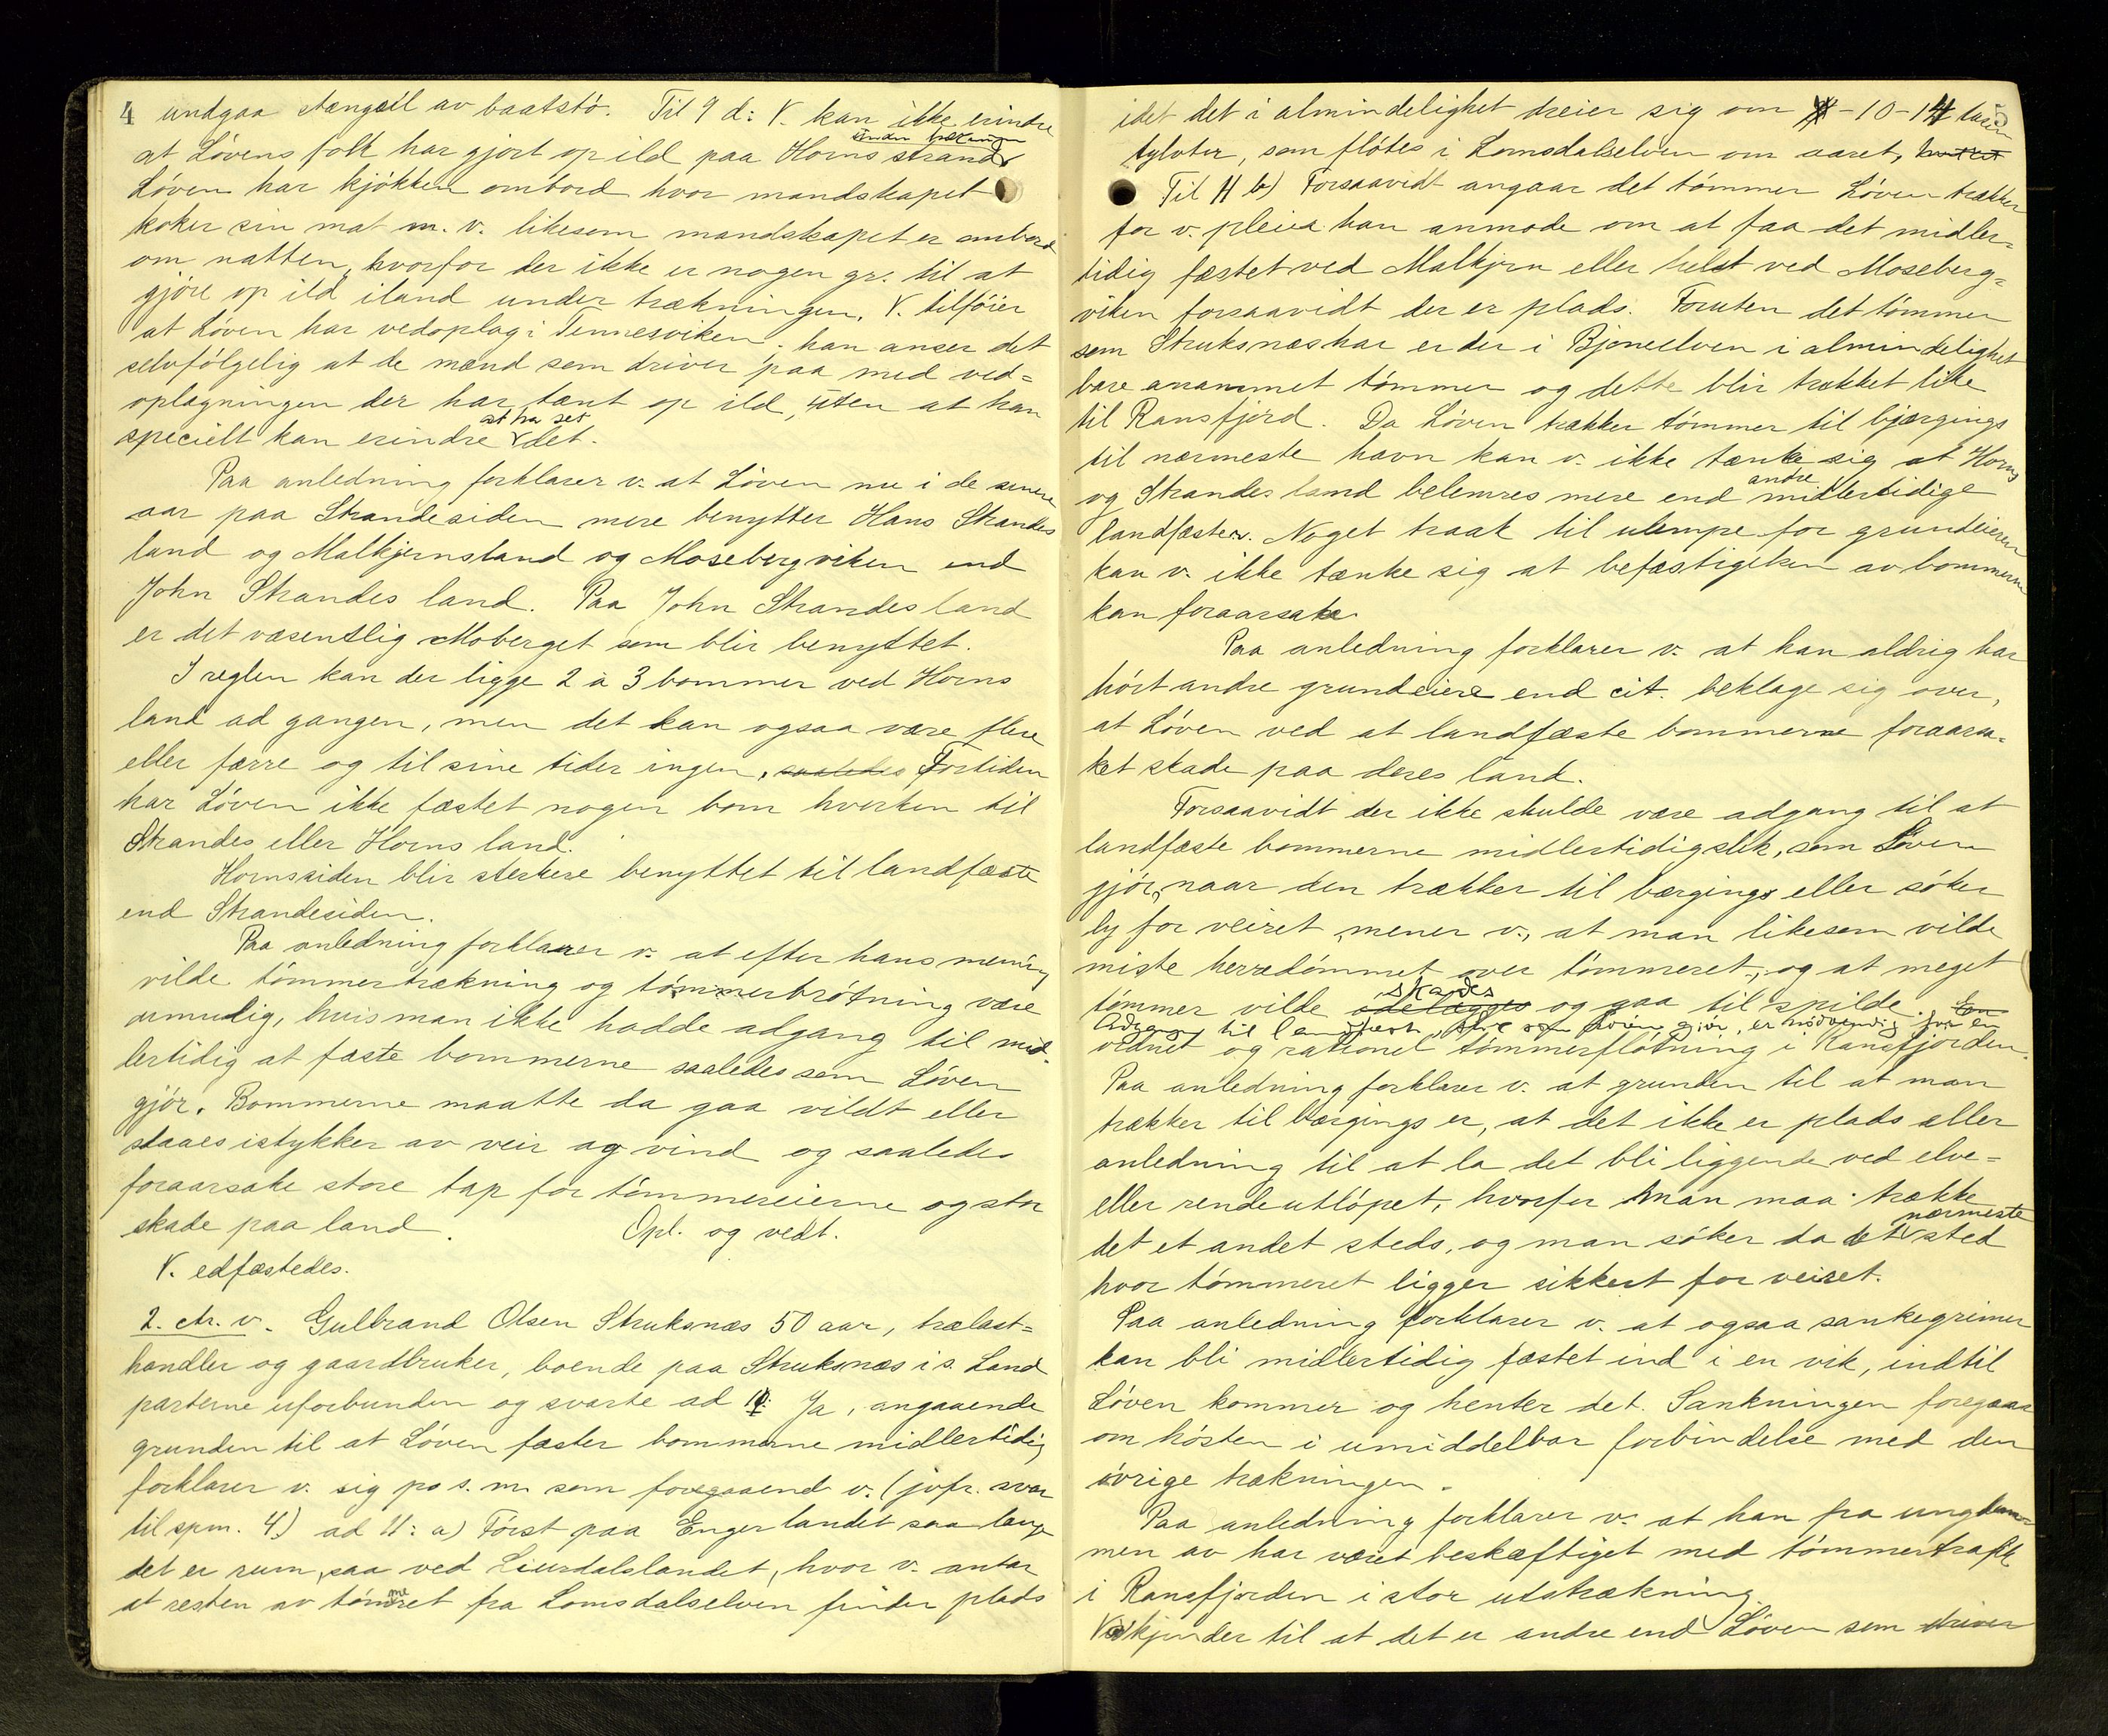 4 undgaa stængsel av baatstø. Til 9 d: V. kan ikke erindre
at Løvens folk har gjort op ild paa Horns strand under trækningen
Løven har kjøkken ombord hvor mandskapet
koker sin mat m. v. likesom mandskapet er ombord
om natten, hvorfor der ikke er nogen gr. til at
gjøre op ild iland under trækningen. V. tilføier
at Løven har vedoplag i Tennesviken. han anser det
selvfølgelig at de mænd som driver paa med ved=
oplægningen der har tænt op ild, uten at han
specielt kan erindre at ha set det.
Paa anledning forklarer v. at Løven nu i de senere
aar paa Strandesiden mere benytter Hans Strandes
land og Malkjernsland og Mosebergviken end
John Strandes land. Paa John Strandes land
er det væsentlig Moberget som blir benyttet.
I reglen kan der ligge 2 à 3 bommer ved Horns
land ad gangen, men det kan ogsaa være flere
eller færre og til sine tider ingen, saaledes Fortiden
har Løven ikke fæstet nogen bom hverken til
Strandes eller Horns land.
Hornssiden blir sterkere benyttet til landfæste
end Strandesiden.
Paa anledning forklarer v. at efter hans mening
vilde tømmertrækning og tømmerbrøtning være
umulig, hvis man ikke hadde adgang til mid-
lertidig at fæste bommerne saaledes som Løven
gjør. Bommerne maatte da gaa vildt eller
slaaes istykker av veir og vind og saaledes
foraarsake store tap for tømmereierne og stor
skade paa land. Opl. og vedt.
V. edfæstedes.
2. ctr. v. Gulbrand Olsen Struksnæs 50 aar, trælast=
handler og gaardbruker, boende paa Struksnæs i s. Land
parterne uforbunden og svarte ad 1: Ja, angaaende
grunden til at Løven fæster bommerne midlertidig
forklarer v. sig paa s. m. som foregaaende v. (jvfr. svar
til spm. 4.) ad 11: a) Først paa Engerlandet saa længe
det er rum, saa ved Liurdalslandet, hvor v. antar
at resten av tømmeret fra Lomsdalselven finder plads
idet det i almindelighet dreier sig om - 10 - 14 tusen
tylvter, som fløtes i Lomsdalselven om aaret,
Til 11 b) Forsaavidt angaar det tømmer Løven trækker
for v. pleier han anmode om at faa det midler=
tidig fæstet ved Malkjern eller helst ved Moseberg=
viken forsaavidt der er plads. Foruten det tømmer
som Struksnæs har er der i Bjoneelven i almindelighet
bare anammet tømmer og dette blir trækket like
til Ransfjord. Da Løven trækker tømmer til bjærgings
til nærmeste havn kan v. ikke tænke sig at Horns
og Strandes land belemres mere end andre midlertidige
landfæster. Noget traak til ulempe for grundeieren
kan v. ikke tænke sig at befæstigelsen av bommerne
kan foraarsake.
Paa anledning forklarer v. at han aldrig har
hørt andre grundeiere end cit. beklage sig over,
at Løven ved at landfæste bommerne foraarsa=
ket skade paa deres land.
Forsaavidt der ikke skulde være adgang til at
landfæste bommerne midlertidig slik, som Løven
gjør, naar den trækker til bærgings eller søker
ly for veiret, mener v., at man likesom vilde
miste herredømmet over tømmeret, og at meget
tømmer vilde ødelægges skades og gaa til spilde. En
Adgang til landfæste, slik som Løven gjør, er nødvendig for en
ordnet og rationel tømmerfløtning i Ransfjorden.
Paa anledning forklarer v. at grunden til at man
trækker til bærgings er, at det ikke er plads eller
anledning til at la det bli liggende ved elve=
eller rendeutløpet, hvorfor man maa trække
det et andet steds, og man søker da det nærmeste sted
hvor tømmeret ligger sikkert for veiret.
Paa anledning forklarer v. at ogsaa sankegrimer
kan bli midlertidig fæstet ind i en vik, indtil
Løven kommer og henter det. Sankningen foregaar
om høsten i umiddelbar forbindelse med den
øvrige trækningen.
Paa anledning forklarer v. at han fra ungdom-
men av har været beskæftiget med tømmertrafik
i Ransfjorden i stor utstrækning.
V. kjender til at det er andre end Løven som driver